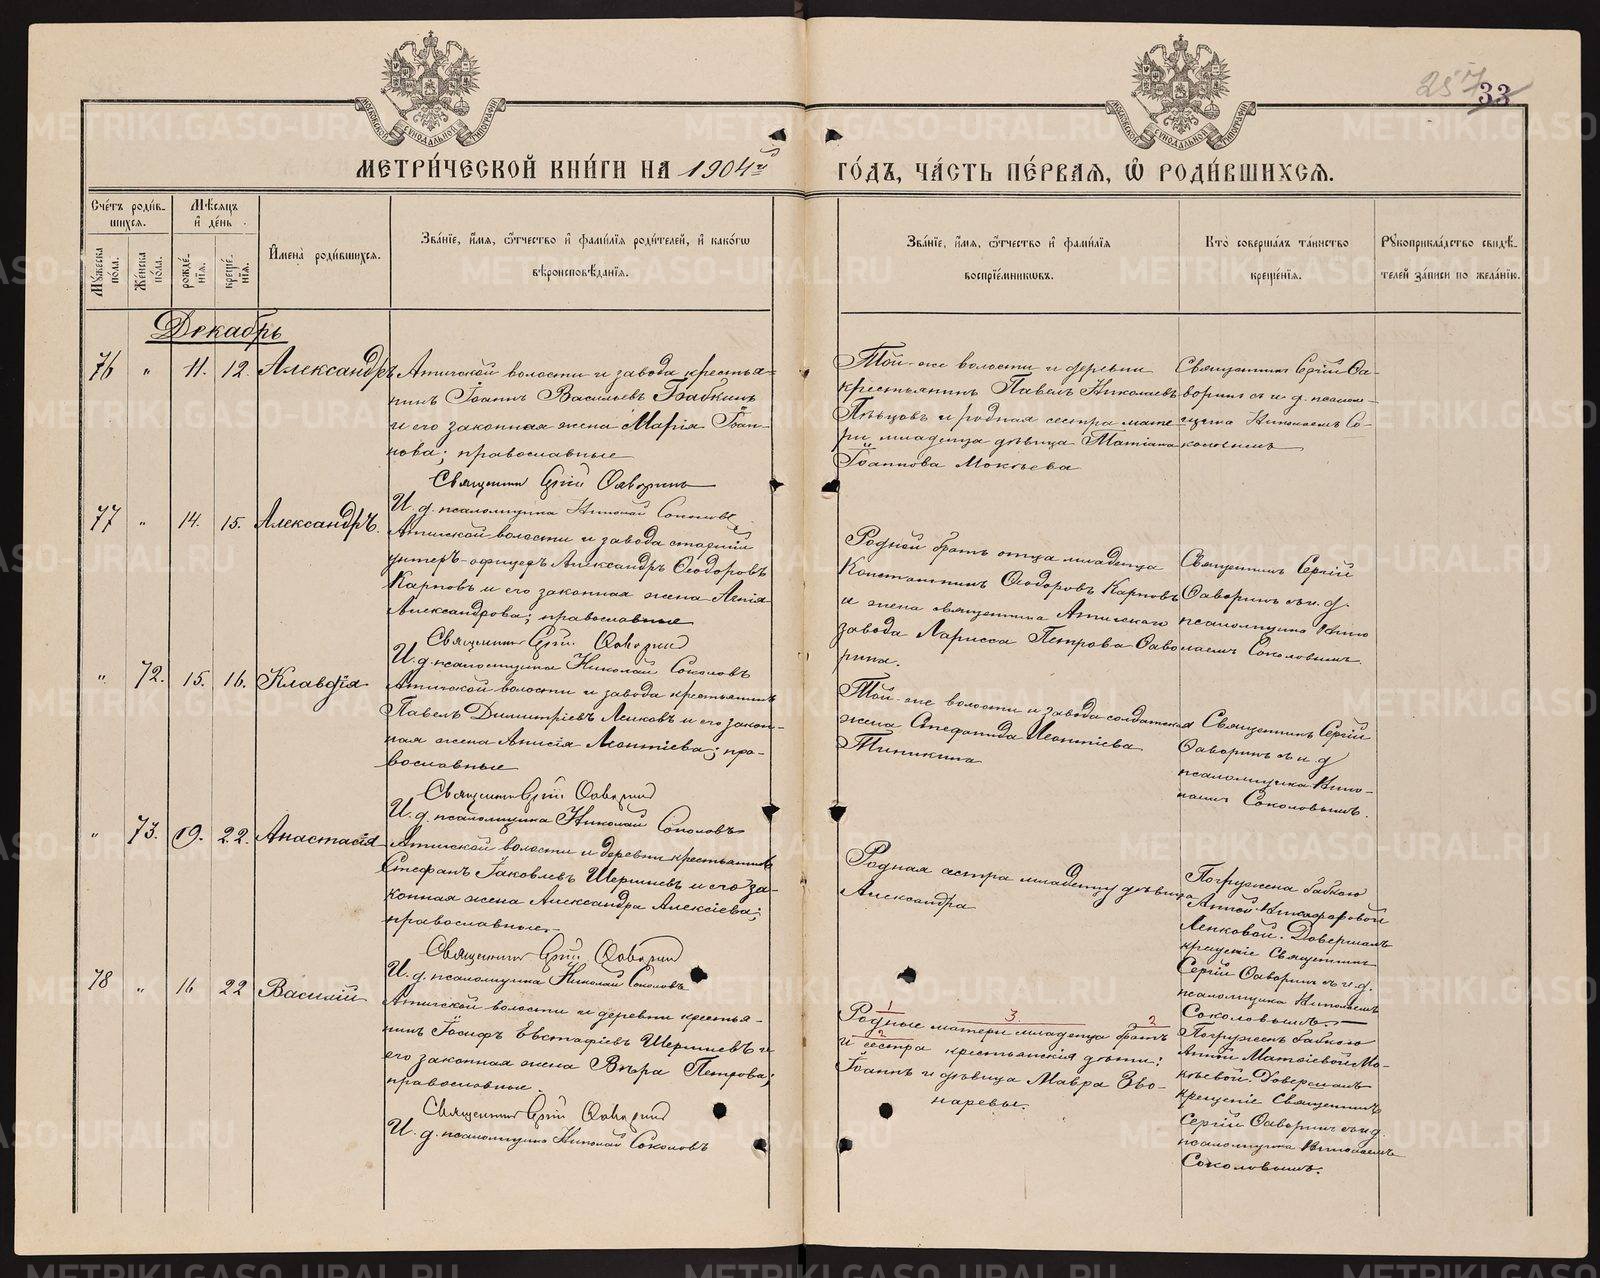 257
33
МЕТРИ́ЧЕСКОЙ КНИ́ГИ НА 1904й ГО́ДЪ, ЧА́СТЬ ПЕ́РВАЯ, Ѡ РОДИ́ВШИХСЯ.
Сче́тъ роди́в-
шихся.
Му́жеска пола.
Же́нска пола.
Мѣ́сяцъ
и́ де́нь
рожде́нїя.
креще́нїя.
И҆мена̀ роди́вшихся.
Зва́нїе, и҆́мя, ѻ҆́тчество и҆ фами́лїя роди́телей, и҆ како́гѡ
вѣроисповѣ́данїя.
Зва́нїе, и҆́мя, ѻ҆́тчество и҆ фами́лїя
воспрїе́мниковъ.
Кто̀ соверша́лъ та́инство
креще́нїя.
Рꙋкоприкла́дство свидѣ́-
телей за́писи по жела́нїю.
Декабрь
76 " 11. 12. Александръ
Ачитской волости и завода крестья-
нинъ Іоаннъ Васильевъ Бабкинъ
и его законная жена Марія Іоан-
нова; православные
Священникъ Сергій Фаворинъ
И. д. псаломщика Николай Соколовъ
Той-же волости и деревни
крестьянинъ Павелъ Николаевъ
Пѣвцовъ и родная сестра мате-
ри младенца дѣвица
Іоаннова Мокѣева
Священникъ Сергій Фа-
воринъ съ и. д. псалом-
щика Николаемъ Со-
коловымъ
77 " 14. 15. Александръ.
Ачитской волости и завода старшій
унтеръ-офицеръ Александръ Ѳеодоровъ
Карповъ и его законная жена Агнія
Александрова; православные
Священникъ Сергій Фаворинъ
И. д. псаломщика Николай Соколовъ
Родной братъ отца младенца
Константинъ Ѳеодоровъ Карповъ
и жена священника Ачитскаго
завода Ларисса Петрова Фаво-
рина.
Священникъ Сергій
Фаворинъ съ и. д.
псаломщика Нико-
лаемъ Соколовымъ.
" 72. 15. 16. Клавдія
Ачитской волости и завода крестьянинъ
Павелъ Димитріевъ и его закон-
ная жена Анисія Леонтіева; пра-
вославные
Священникъ Сергій Фаворинъ
И. д. псаломщика Николай Соколовъ
Той-же волости и завода солдатская
жена Стефанида Леонтіева
Типикина
Священникъ Сергій
Фаворинъ съ и. д
псаломщика Нико-
лаемъ Соколовымъ.
" 73. 19. 22. Анастасія
Ачитской волости и деревни крестьянинъ
Стефанъ Іаковлевъ Шершневъ и его за-
конная жена Александра Алексіева;
православные.
Священникъ Сергій Фаворинъ
И. д. псаломщика Николай Соколовъ
Родная сестра младенцу дѣвица
Александра
Погружена бабкою
Анной Никифоровой
Ленковой. Довершалъ
крещеніе Священникъ
Сергій Фаворинъ съ и. д.
псаломщика Николаемъ
Соколовымъ.
78 " 16 22 Василій
Ачитской волости и деревни крестья-
нинъ Іосифъ Евстафіевъ Шершневъ и
его законная жена Вѣра Петрова;
православные.
Священникъ Сергій Фаворинъ
И. д. псаломщика Николай Соколовъ
1 3. 2
Родные матери младенца братъ
2
и сестра крестьянскія дѣти:
Іоаннъ и дѣвица Мавра Зво-
наревы.
Погруженъ бабкою
Анной Матѳіевой Мо-
кѣевой. Довершалъ
крещеніе Священникъ
Сергій Фаворинъ съ и. д.
псаломщика Николаемъ
Соколовымъ.
METRIKI.GASO-URAL.RU